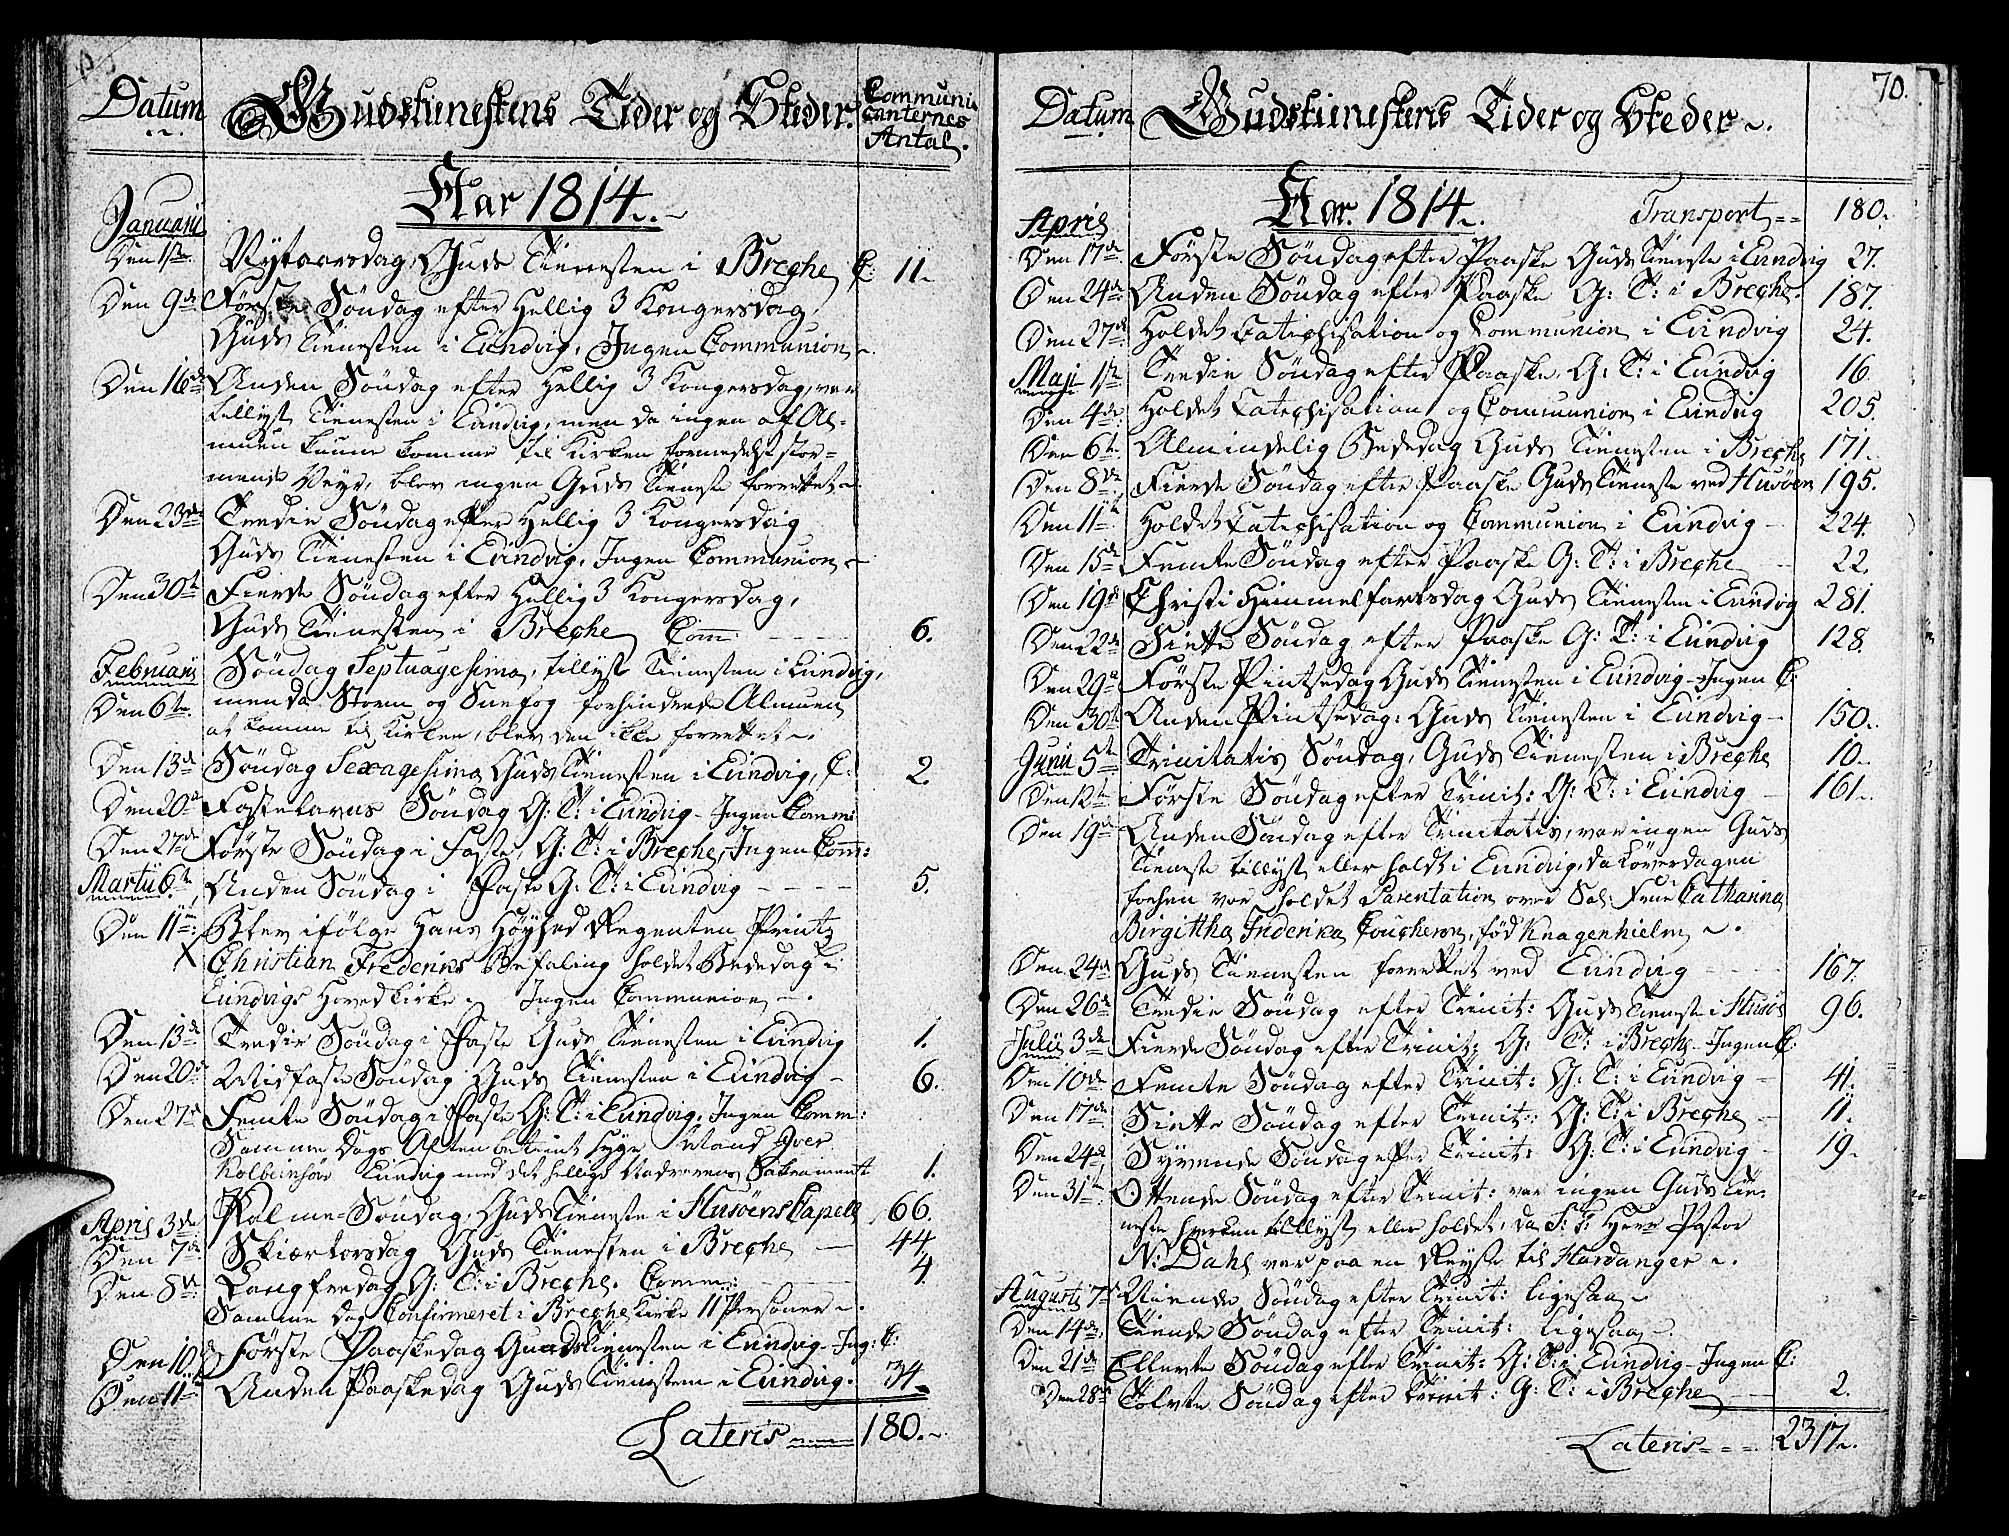 Datum Gudstienestens Tider og Steder. Communicanternes Antal.
Aar 1814.
Januarii
Den 1ste Nytaarsdag, Guds Tienesten i Breche C: 11.
Den 9de Første Søndag efter Hellig 3 Kongersdag,
Guds Tienesten i Eundvig, Ingen Communion.
Den 16de Anden Søndag efter Hellig 3 Kongersdag, var
tillyst Tienesten i Eundvig, men da ingen af Al-
muen kunne komme til Kirken formedelst stor-
mende Veyr, blev ingen Guds Tieneste forrettet.
Den 23de Tredie Søndag efter Hellig 3 Kongersdag
Guds Tienesten i Evindvig, Ingen Communion.
Den 30te Fierde Søndag efter Hellig 3 Kongersdag,
Guds Tienesten i Breche Com: 6.
Februarii Søndag Septuagesima, tillyst Tienesten i Eundvig,
Den 6te men da Storm og Snefog forhindrede Almuen
at komme til Kirken, blev den ikke forrettet.
Den 13de Søndag Sexagesima Guds Tienesten i Eundvig, C: 2.
Den 20de Fastelavns Søndag G: T: i Eundvig - Ingen Comm:
Den 27de Første Søndag i Faste, G: T: i Breche, Ingen Com:
Martii 6te Anden Søndag i Faste G: T: i Eundvig 5.
Den 11te Blev ifølge Hans Høyhed Regenten Printz
X Christian Frederiks Befaling holdet Bededag i
Eundvigs Hovedkirke. Ingen Communion.
Den 13de Tredie Søndag i Faste Guds Tienesten i Eundvig 1.
Den 20de Midfaste Søndag Guds Tienesten i Eundvig 6.
Den 27de Femte Søndag i Faste G: T: i Eundvig, Ingen Comm:
Samme Dags Aften betient Syge Iver
Kolbeinsøn Eundvig med det hellige Nadverens Sakrament 1.
April 3de Palme-Søndag, Guds Tieneste i Husøens Capell 66.
Den 7de Skiærtorsdag Guds Tienesten i Breche 44.
Den 8de Langfredag G: T: i Breche. Comm: 4.
Samme Dag Confirmeret i Breche Kirke 11 Personer.
Den 10de Første Paaskedag Gudstienesten i Eundvig - Ing: C:
Den 11te Anden Paaskedag Guds Tienesten i Eundvig. 34.
Lateris 180.
70.
Datum Gudstienestens Tider og Steder.
Aar 1814. Transport 180.
April
Den 17de Første Søndag efter Paaske Guds Tieneste i Eundvig 27.
Den 24de Anden Søndag efter Paaske G: T: i Breche. 187.
Den 27de Holdet Catechisation og Communion i Eundvig 24.
Maji 1ste Tredie Søndag efter Paaske, G: T: i Eundvig 16.
Den 4de Holdet Catechisation og Communion i Eundvig 205.
Den 6te Almindelig Bededag Guds Tienesten i Breche 171.
Den 8de Fierde Søndag efter Paaske Guds Tieneste ved Husøen 195.
Den 11te Holdet Catechisation og Communion i Eundvig 224.
Den 15de Femte Søndag efter Paaske G: T: i Breche 22.
Den 19de Christi Himmelfartsdag Guds Tienesten i Eundvig 281.
Den 22de Siette Søndag efter Paaske G: T: i Eundvig 128.
Den 29de Første Pintsedag Guds Tienesten i Eundvig - Ingen C:
Den 30te Anden Pintsedag: Guds Tienesten i Eundvig 150.
Junii 5te Trinitatis Søndag, Guds Tienesten i Breche 10.
Den 12te Første Søndag efter Trinit: G: T: i Eundvig 161.
Den 19de Anden Søndag efter Trinitatis, var ingen Guds
Tieneste tillyst eller holdt i Eundvig, da Løverdagen
forhen var holdet Parentation over Sal: Frue Catharina
Birgittha Inderika Coucheron, fød Knagenhielm.
Den 24de Guds Tienesten forrettet ved Eundvig 167.
Den 26de Tredie Søndag efter Trinit: Guds Tieneste i Husøe 96.
Julii 3de Fierde Søndag efter Trinit: G: T: i Breche - Ingen C:
Den 10de Femte Søndag efter Trinit: G: T: i Eundvig 41.
Den 17de Siette Søndag efter Trinit: G: T: i Breche 11.
Den 24de Syvende Søndag efter Trinit: G: T: i Eundvig 19.
Den 31te Ottende Søndag efter Trinit: var ingen Guds Tie-
neste hverken tillyst eller holdet, da S: T: Herr Pastor
N: Dahl var paa en Reyse til Hardanger.
Augusti 7de Niende Søndag efter Trinit: ligesaa
Den 14de Tiende Søndag efter Trinit: ligesaa.
Den 21de Ellevte Søndag efter Trinit: G: T: i Eundvig - Ingen C:
Den 28de Tolvte Søndag efter Trinit: G: T: i Breche 2.
Lateris 2317.